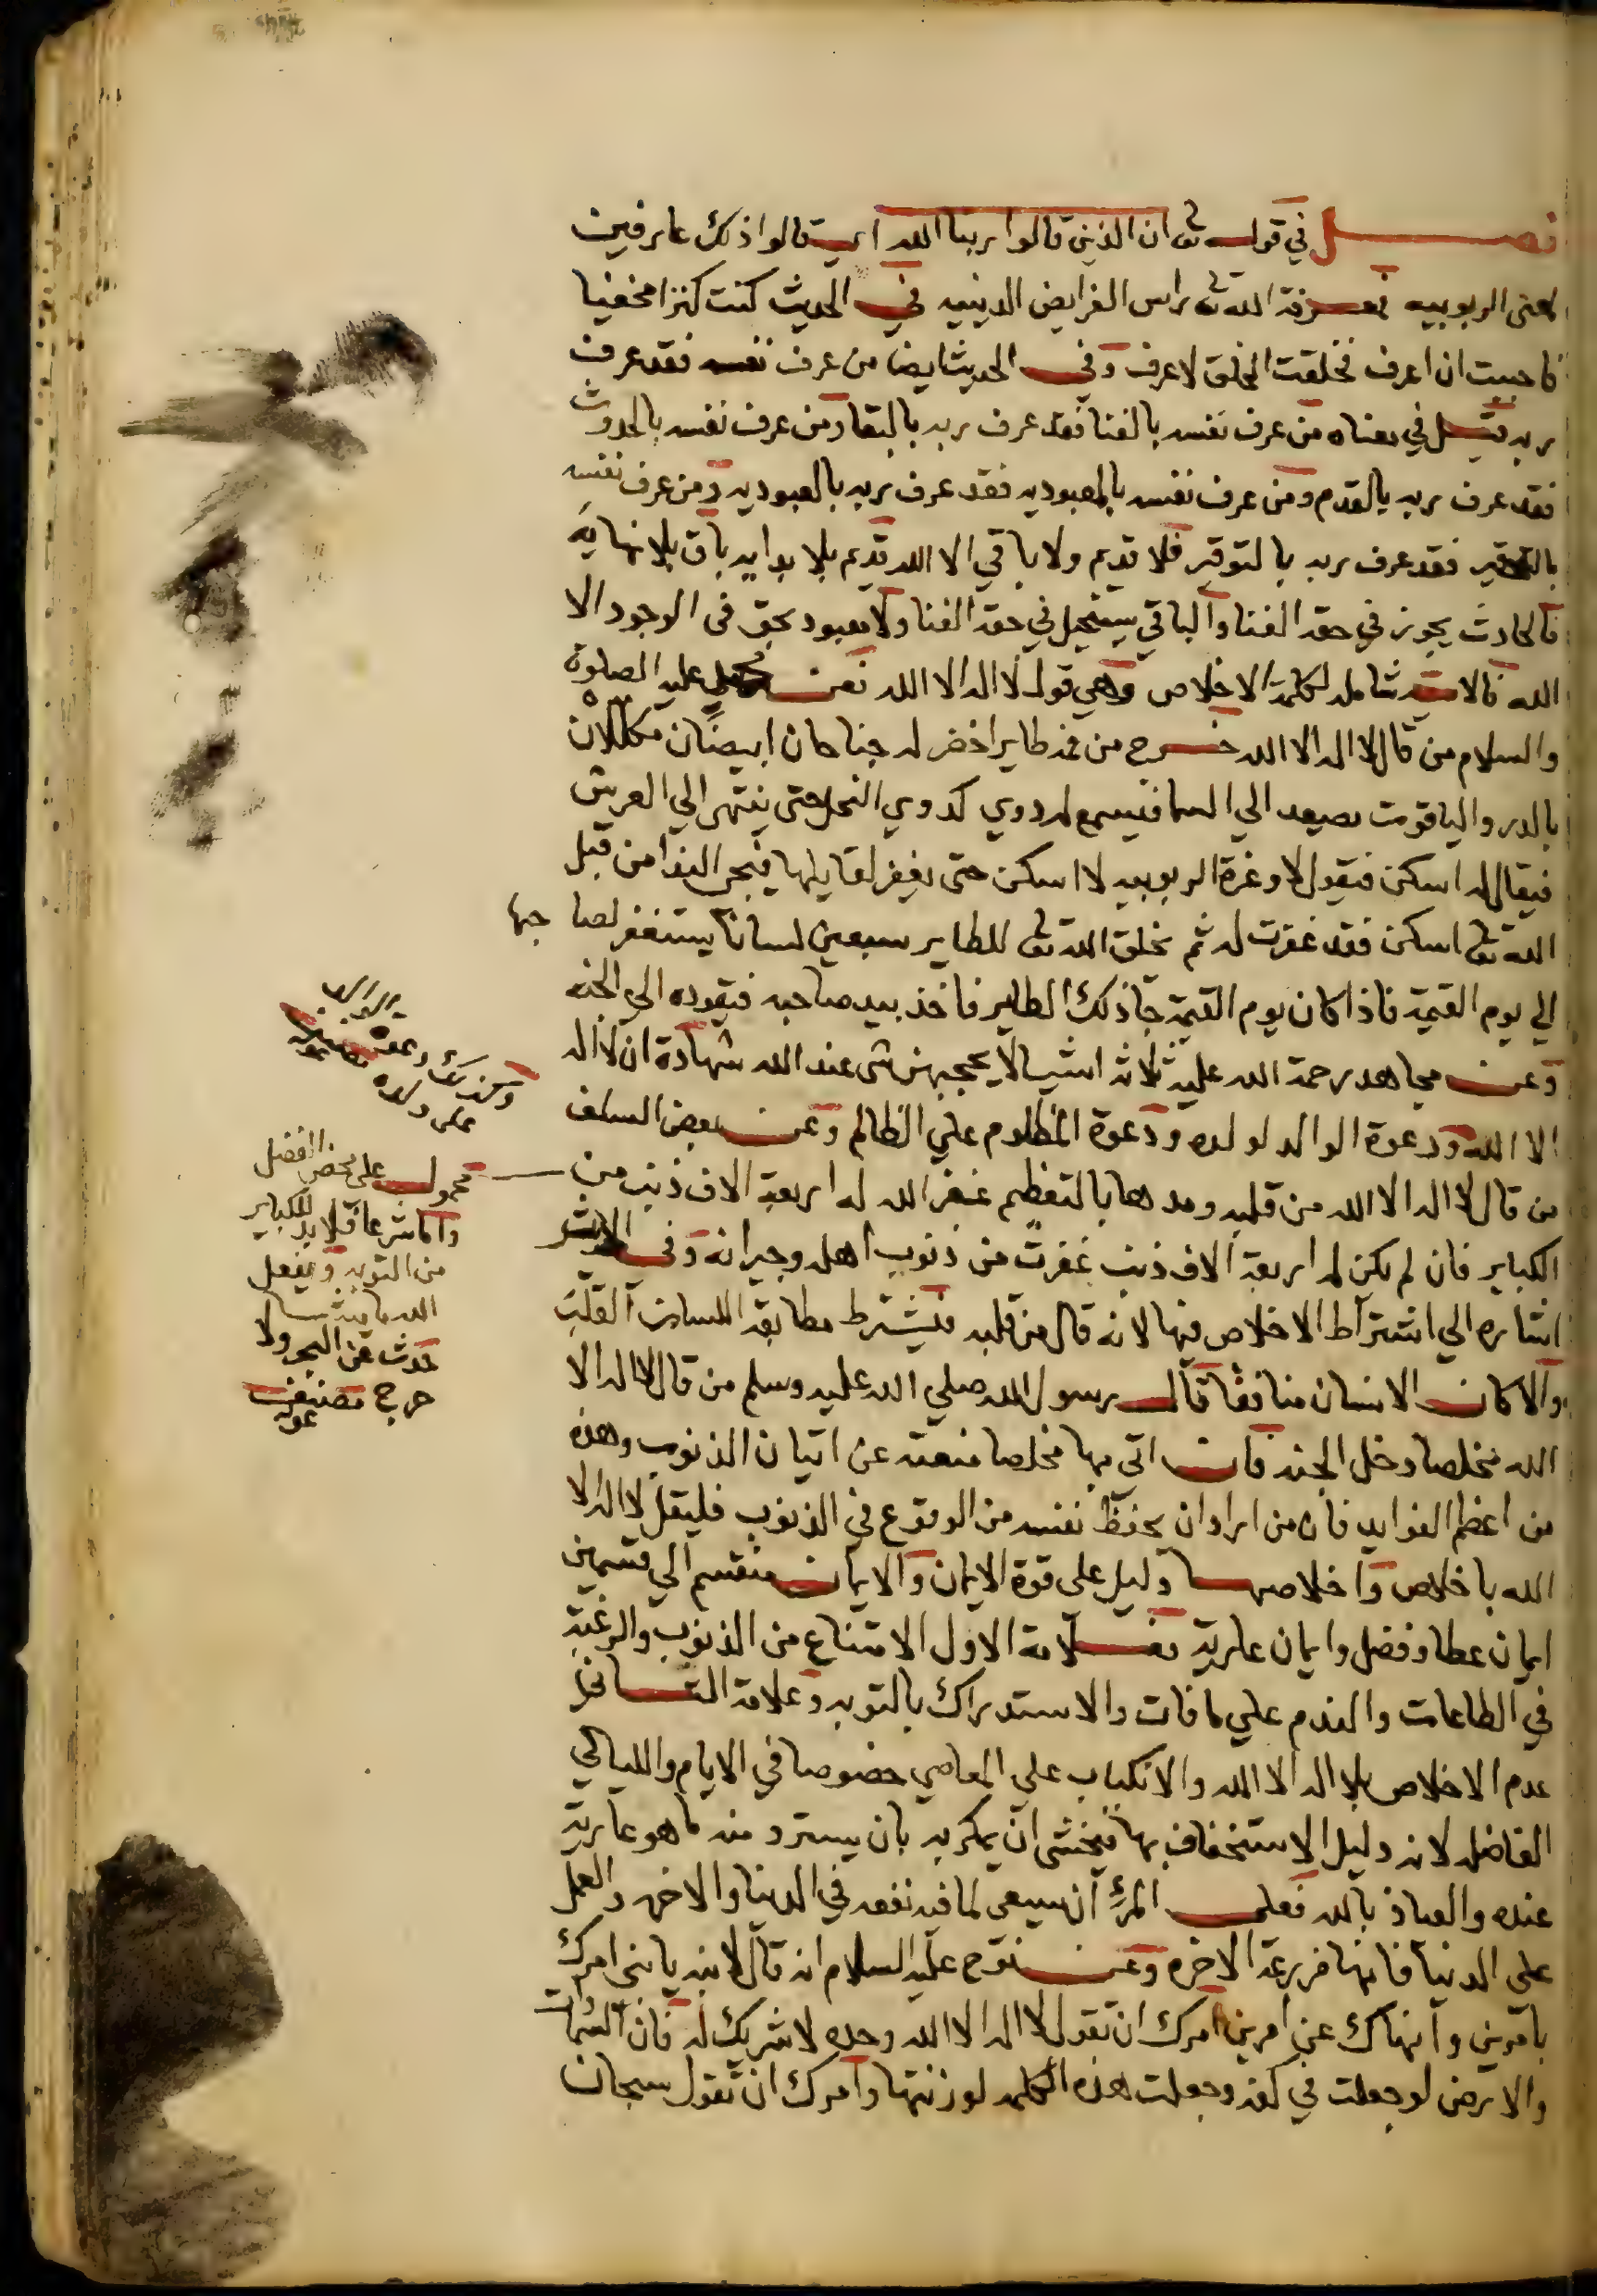 فصل في قوله تعالى ان الذين قالوا ربنا الله اي قالوا ذلك عارفين
لمعنى الربوبيه فمعرفة الله تعالى راس الفرايض الدينيه في الحديث كنت كنزا مخفيا
فاحببت ان اعرف فخلقت الخلق لاعرف وفي الحديث ايضا من عرف نفسه فقد عرف
ربه قيل في معناه من عرف نفسه بالفنا فقد عرف ربه بالبقا ومن عرف نفسه بالحدوث
فقد عرف ربه بالقدم ومن عرف نفسه بالعبوديه فقد عرف ربه بالمعبوديه ومن عرف نفسه
بالتحقير فقد عرف ربه بالتوقير فلا قديم ولا باقي الا الله قديم بلا بدايه باق بلا نهايه
فالحادث يجوز في حقه الفنا والباقي يستحيل في حقه الفنا ولا معبود بحق في الوجود الا
الله فالايه شامله لكلمة الاخلاص وهي قول لا اله الا الله فعن عليه الصلوة
والسلام من قال لا اله الا الله خرج من فمه طايرا خضر له جناحان ابيضان مكللان
بالدر والياقوت يصعد الي السما فيسمع له دوي كدوي النحل حتى ينتهي الي العرش
فيقال له اسكن فيقول لا وعزة الربوبيه لا اسكن حتى يغفر لقايلها فيجي الندا من قبل
الله تعالى اسكن فقد غفرت له ثم يخلق الله تعالى للطاير سبعين لسانا يستغفر لصاحبها
الي يوم القيمة فاذا كان يوم القيمة جا ذلك الطاير فاخذ بيد صاحبه فيقوده الي الجنه
وعن مجاهد رحمة الله عليه ثلاثة اشيا لا يحجبهن شي عند الله شهادة ان لا اله
الا الله ودعوة الوالد لولده ودعوة المظلوم علي الظالم وعن بعض السلف
من قال لا اله الا الله من قلبه ومدها بالتعظيم غفر الله له اربعة الاف ذنب من
الكباير فان لم يكن له اربعة الاف ذنب غفرت من ذنوب اهله وجيرانه وفي
اشاره الي اشتراط الاخلاص فيها لانه قال من قلبه فيشترط مطابقة اللسان القلب
والا كان الانسان منافقا قال رسول الله صلي الله عليه وسلم من قال لا اله الا
الله مخلصا دخل الجنه فان اتي بها مخلصا منعته عن اتيان الذنوب وهذه
من اعظم الفوايد فان من اراد ان يحفظ نفسه من الوقوع في الذنوب فليقل لا اله الا
الله باخلاص واخلاصها دليل على قوة الايمان والايمان منقسم الي قسمين
ايمان عطا وفضل وايمان عارية فعلامة الاول الامتناع من الذنوب والرغبة
في الطاعات والندم علي ما فات والاستدراك بالتوبه وعلامة الثاني
عدم الاخلاص بلا اله الا الله والانكباب علي المعاصي خصوصا في الايام والليالي
الفاضله لانه دليل الاستخفاف بها فيخشى ان يمكر به بان يسترد منه ما هو عارية
عنده والعياذ بالله فعلى المرء ان يسعى لما فيه نفعه في الدنيا والاخره والعمل
على الدنيا فانها مزرعة الاخره وعن نوح عليه السلام انه قال لابنه يا بني امرك
بامرين وانهاك عن امرين امرك ان تقول لا اله الا الله وحده لا شريك له فان السموات
والارض لو جعلت في كفه وجعلت هذه الكلمه لوزنتها وامرك ان تقول سبحان
وكذلك دعوه
على ولده
محمول على محض الفضل
واما شرعا فلا بد للكباير
من التوبه ويفعل
الله ما يشا
حدث عن البحر ولا
حرج